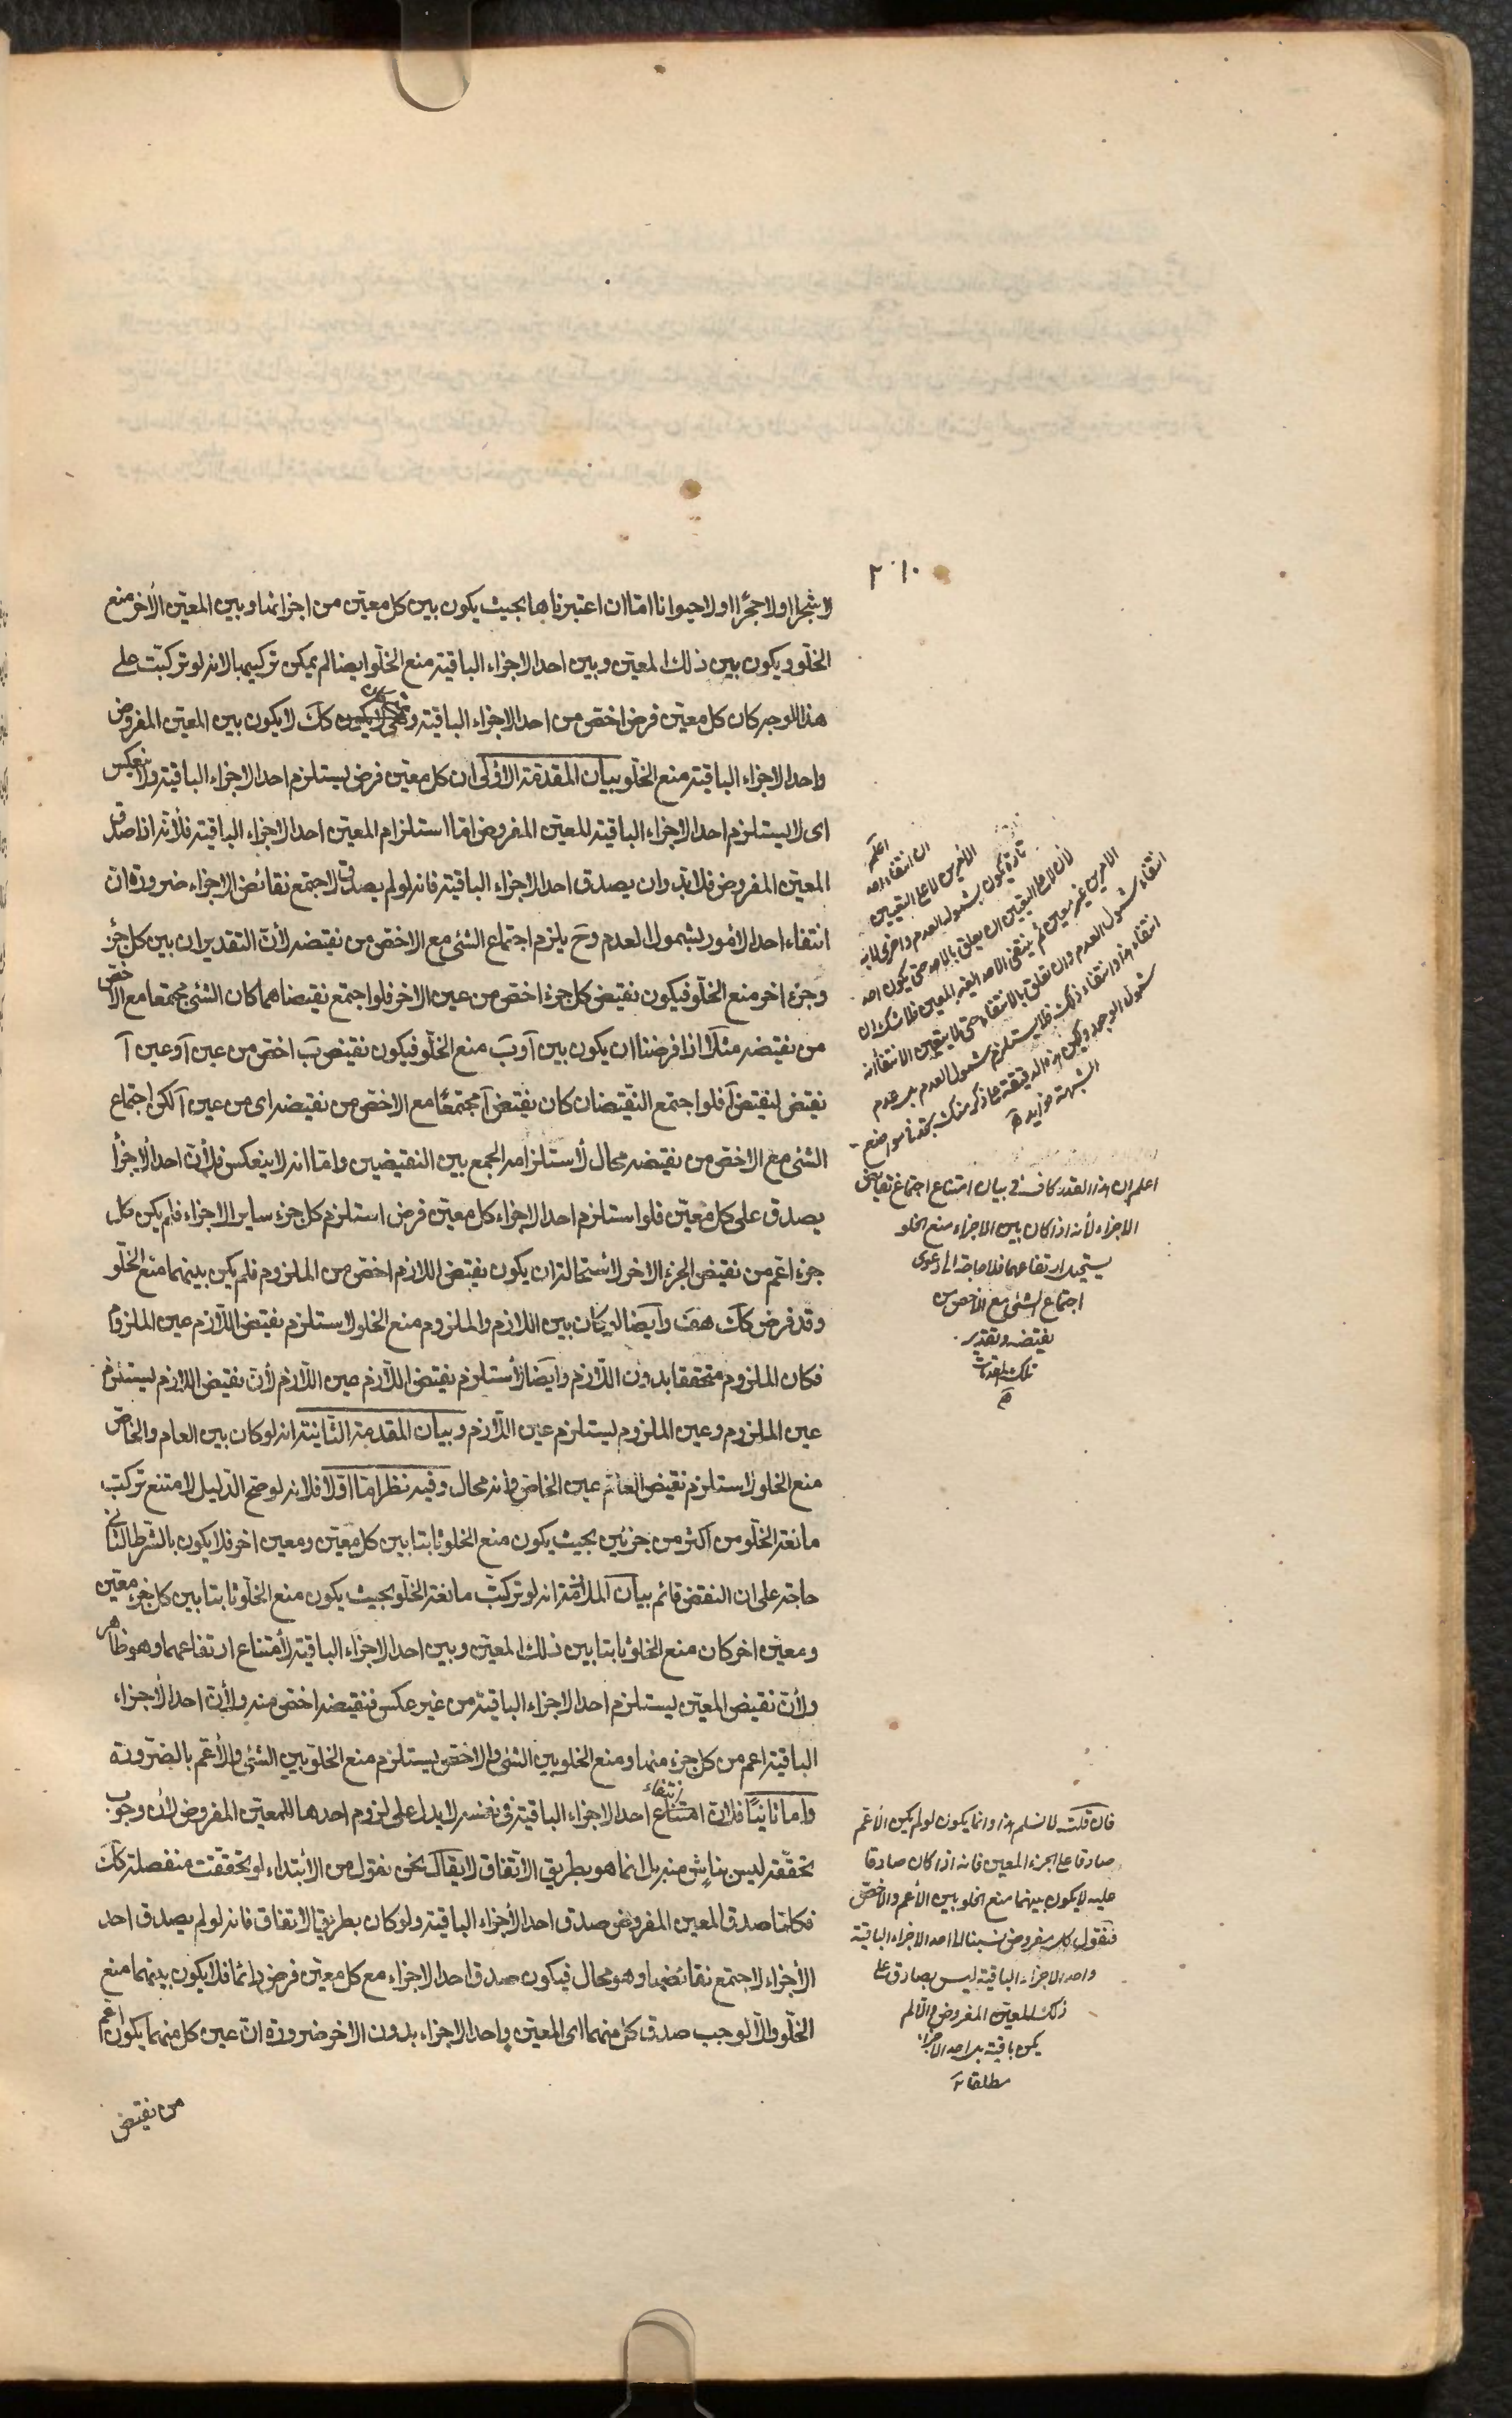 لا شجرا او لا حجرا او لا حيوانا اما ان اعتبرناها بحيث يكون بين كل معين من اجزائها وبين المعين الآخر منع
الخلو ويكون بين ذلك المعين وبين احد الاجزاء الباقية منع الخلو ايضا لم يمكن تركيبها لانه لو تركبت على
هذا الوجه كان كل معين فرض اخص من احد الاجزاء الباقية ومتى كان كك لا يكون بين المعين المفروض
واحد الاجزاء الباقية منع الخلو بيان المقدمة الاولى ان كل معين فرض يستلزم احد الاجزاء الباقية ولا ينعكس
اى لا يستلزم احد الاجزاء الباقية للمعين المفروض اما استلزام المعين احد الاجزاء الباقية فلأنه اذا صدق
المعين المفروض فلابد وان يصدق احد الاجزاء الباقية فانه لو لم يصدق لاجتمع نقائض الاجزاء ضرورة ان
انتفاء احد الامور بشمول العدم وح يلزم اجتماع الشئ مع الاخص من نقيضه لأن التقدير ان بين كل جزء
وجزء اخر منع الخلو فيكون نقيض كل جزء اخص من عين الاخر فلو اجتمع نقيضاهما كان الشئ مجتمعا مع الاخص
من نقيضه مثلا اذا فرضنا ان يكون بين آ وبَ منع الخلو فيكون نقيض بَ اخص من عين آ وعين آ
نقيض لنقيض آ فلو اجتمع النقيضان كان نقيض آ مجتمعا مع الاخص من نقيضه اى من عين آ لكن اجتماع
الشئ مع الاخص من نقيضه محال لأستلزامه الجمع بين النقيضين واما انه لا ينعكس فلأن احد الاجزأ
يصدق على كل معين فلو استلزم احد الاجزاء كل معين فرض استلزم كل جزء ساير الاجزاء فلم يكن كل
جزء اعم من نقيض الجزء الاخر لاستحالة ان يكون نقيض اللازم اخص من الملزوم فلم يكن بينهما منع الخلو
وقد فرض كك هف وايضا لو كان بين اللازم والملزوم منع الخلو لاستلزم نقيض اللازم عين الملزوم
فكان الملزوم متحققا بدون اللازم وايضا لأستلزم نقيض اللازم عين اللازم لأن نقيض اللازم يستلزم
عين الملزوم وعين الملزوم يستلزم عين اللازم وبيان المقدمة الثانية انه لو كان بين العام والخاص
منع الخلو لاستلزم نقيض العام عين الخاص وانه محال وفيه نظر اما اولا فلانه لو صح الدليل لامتنع تركب
مانعة الخلو من اكثر من جزئين بحيث يكون منع الخلو ثابتا بين كل معين ومعين اخر فلا يكون بالشرط الثانى
حاجة على ان النقض قائم بيان الملازمة انه لو تركبت مانعة الخلو بحيث يكون منع الخلو ثابتا بين كل جزء معين
ومعين اخر كان منع الخلو ثابتا بين ذلك المعين وبين احد الاجزاء الباقية لأمتناع ارتفاعهما وهو ظاهر
ولأن نقيض المعين يستلزم احد الاجزاء الباقية من غير عكس فنقيضه اخص منه ولأن احد الأجزاء
الباقية اعم من كل جزء منها ومنع الخلو بين الشئ والاخص يستلزم منع الخلو بين الشئ والأعم بالضرورة
واما ثانيا فلان انتفاء احد الاجزاء الباقية فى نفسه لا يدل على لزوم احدها للمعين المفروض لأن وجوب
تحققه ليس بناش منه بل انما هو بطريق الاتفاق لا يقال نحن نقول من الأبتداء لو تحققت منفصلة كك
فكلما صدق المعين المفروض صدق احد الأجزاء الباقية ولو كان بطريق الاتفاق فانه لو لم يصدق احد
الأجزاء لاجتمع نقائضها وهو محال فيكون صدق احد الاجزاء مع كل معين فرض دائما فلا يكون بينهما منع
الخلو والا لوجب صدق كل منهما اى المعين واحد الاجزاء بدون الاخر ضرورة ان عين كل منهما يكون اعم
من نقيض
اعلم
ان انتفاء احد
الأمرين لا على التعيين
تارة يكون بشمول العدم واخرى لا به
اعلم ان هذا القدر كاف فى بيان امتناع اجتماع نقايض
الاجزاء لأنه اذا كان بين الاجزاء منع الخلو
يستحيل ارتفاعهما فلا حاجة الى دعوى
اجتماع الشئ مع الاخص من
نقيضه وتقدير
تلك المقدمات
فان قلت لا نسلم هذا وانما يكون لو لم يكن الأعم
صادقا على الجزء المعين فانه اذا كان صادقا
عليه لا يكون بينهما منع الخلو بين الأعم والأخص
فنقول كل مفروض نسبنا الى احد الاجزاء الباقية
واحد الاجزاء الباقية ليس بصادق على
ذلك المعين المفروض والا لم
يكن باقية بل احد الاجزاء
مطلقا